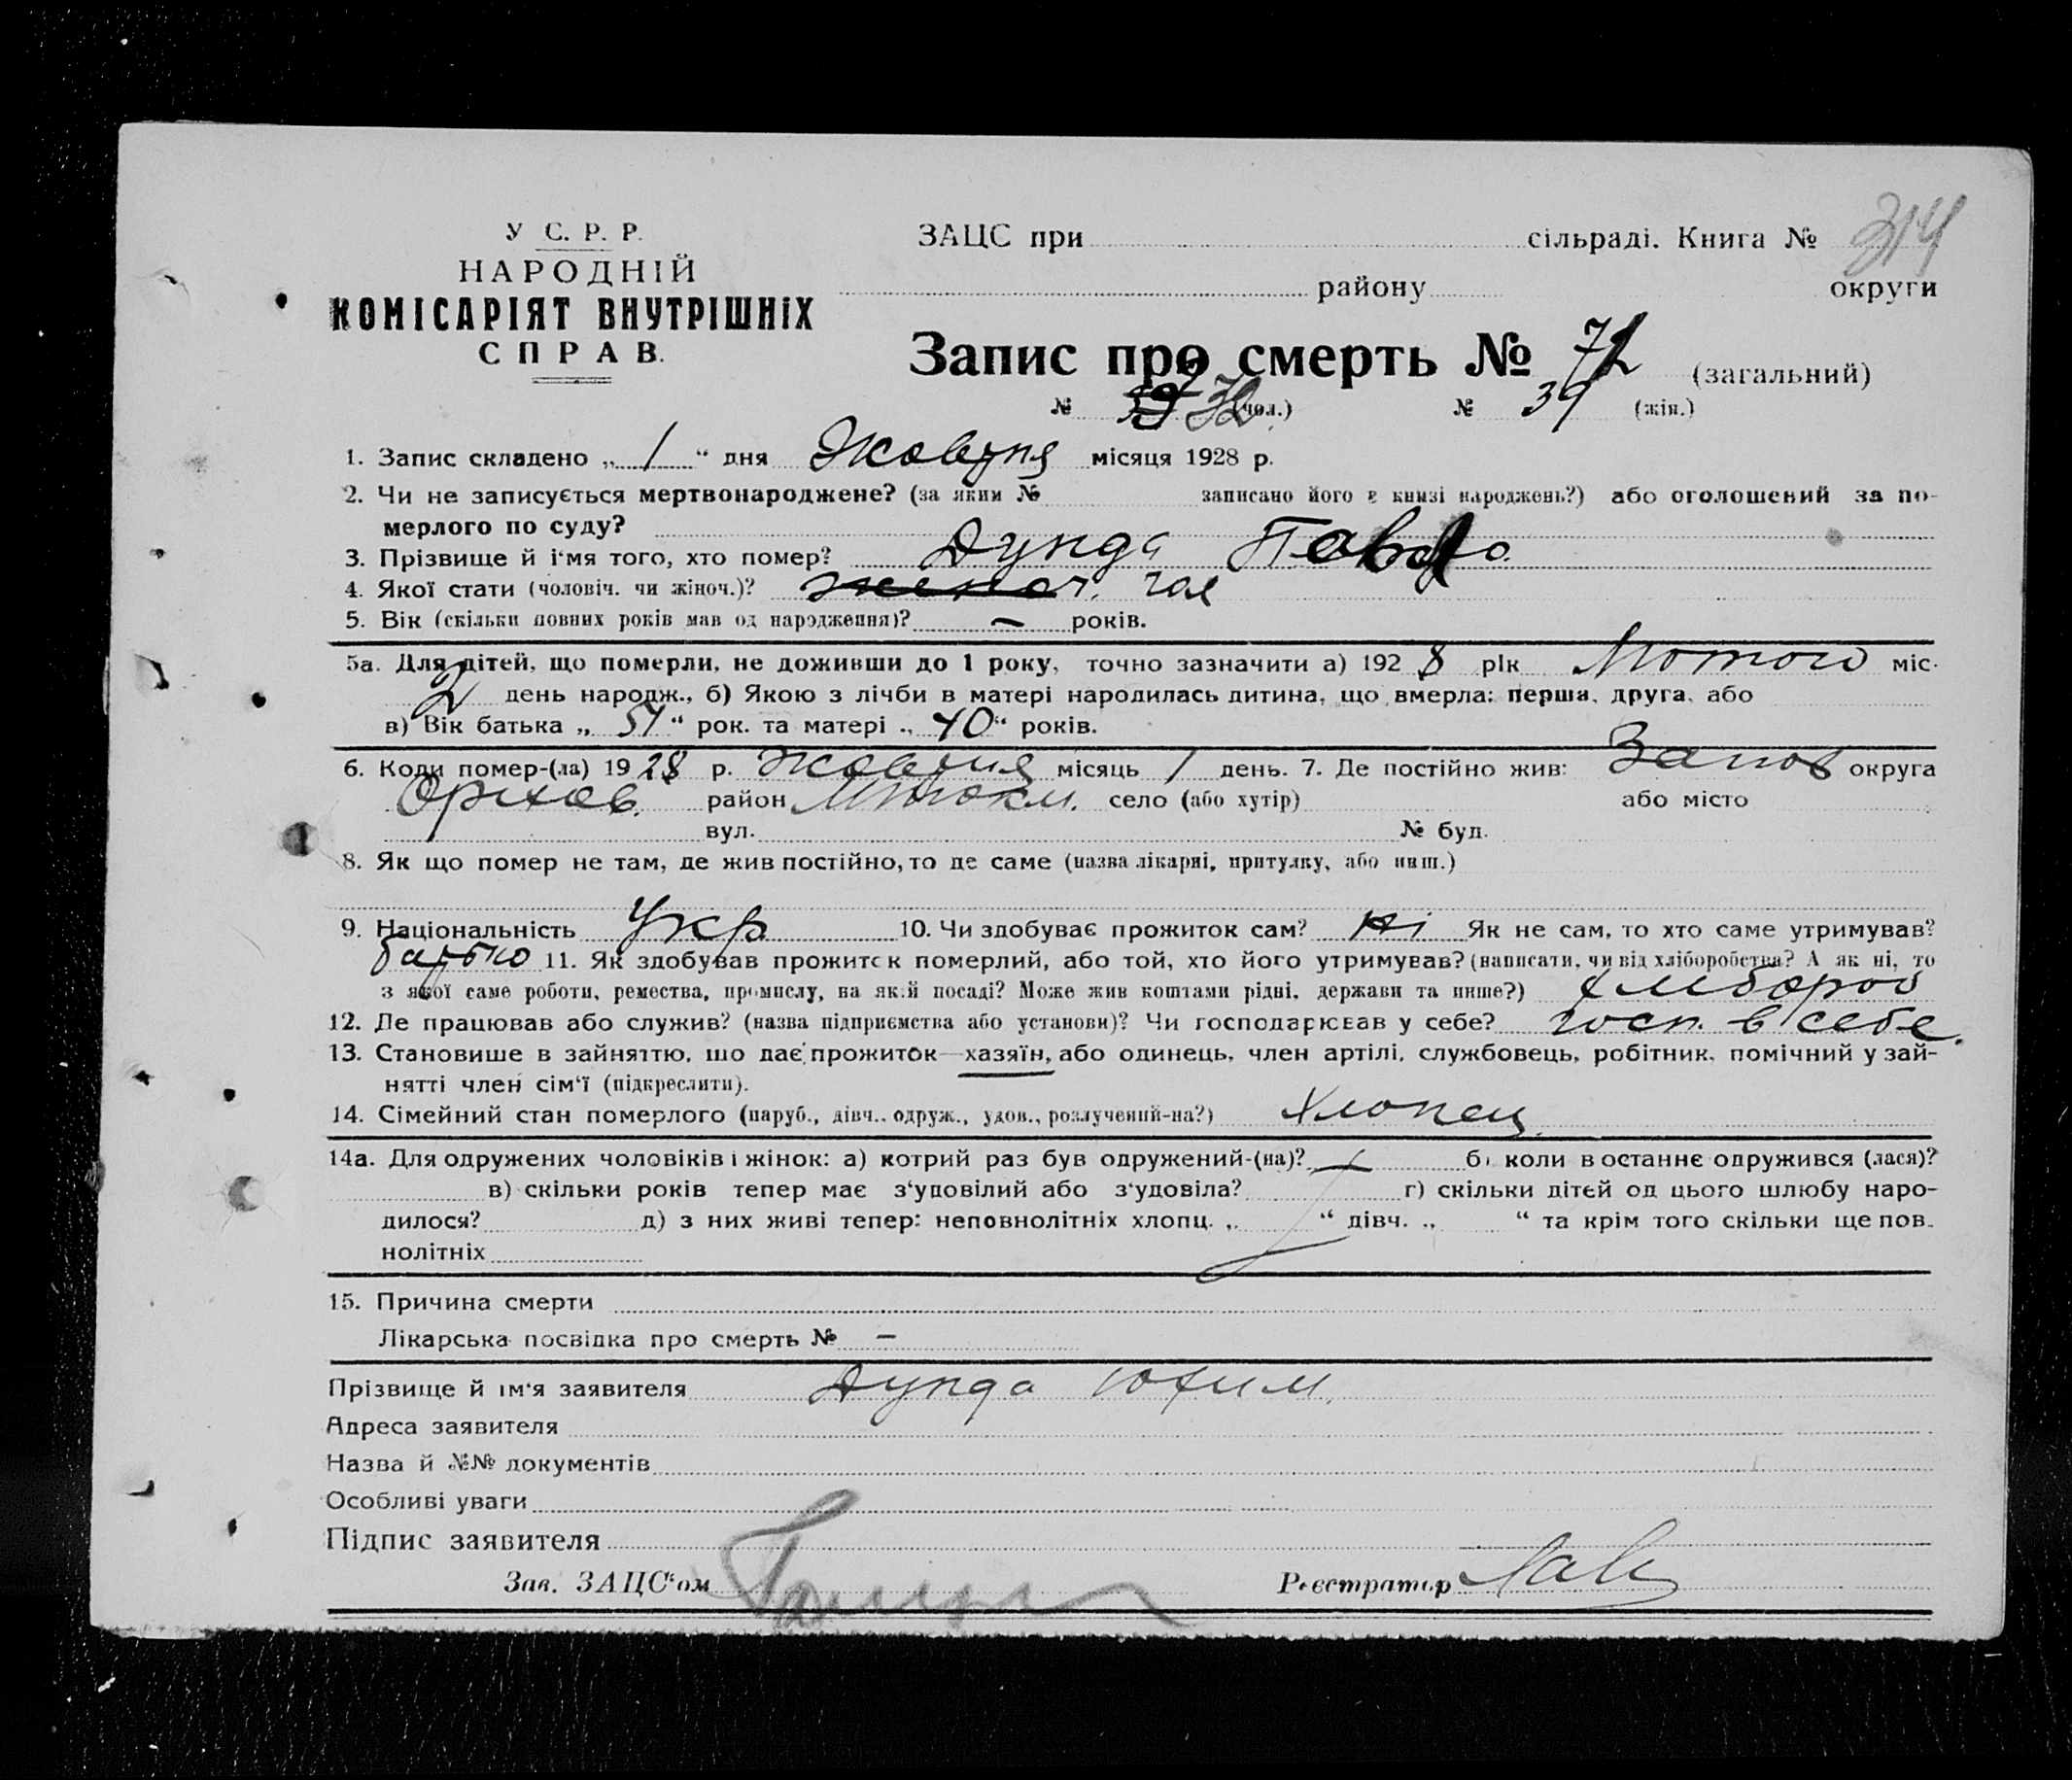 314
У С. Р. Р.
НАРОДНІЙ
КОМІСАРІЯТ ВНУТРІШНІХ
СПРАВ.
ЗАЦС при сільраді. Книга №
району округи
Запис про смерть № 72 (загальний)
№ 32 (чол.) № 39 (жін.)
1. Запис складено „ 1 “ дня Жовтня місяця 1928 р.
2. Чи не записується мертвонароджене? (за яким № записано його в книзі народжень?) або оголошений за по-
мерлого по суду?
3. Прізвище й і'мя того, хто помер? Дунда Павло
4. Якої стати (чоловіч. чи жіноч.)? чол
5. Вік (скільки повних років мав од народження)? – років.
5а. Для дітей, що померли, не доживши до 1 року, точно зазначити а) 192 8 рік Лютого міс.
2 день народж., б) Якою з лічби в матері народилась дитина, що вмерла: перша, друга, або
в) Вік батька „ 54 “ рок. та матері „ 40 “ років.
6. Коли помер-(ла) 19 28 р. Жовтня місяць 1 день. 7. Де постійно жив: Запов округа
Оріхов. район село (або хутір) або місто
вул. № буд.
8. Як що помер не там, де жив постійно, то де саме (назва лікарні, притулку, або инш.)
9. Національність Укр 10. Чи здобуває прожиток сам? Ні Як не сам, то хто саме утримував?
батько 11. Як здобував прожиток померлий, або той, хто його утримував? (написати, чи від хліборобства? А як ні, то
з якої саме роботи, ремества, промислу, на якій посаді? Може жив коштами рідні, держави та инше?) хлібороб
12. Де працював або служив? (назва підприємства або установи)? Чи господарював у себе? госп. в себе.
13. Становище в зайняттю, що дає прожиток—хазяїн, або одинець, член артілі, службовець, робітник, помічний у зай-
нятті член сім'ї (підкреслити).
14. Сімейний стан померлого (паруб., дівч., одруж., удов., розлучений-на?) Хлопец.
14а. Для одружених чоловіків і жінок: а) котрий раз був одружений-(на)? б) коли востаннє одружився (лася)?
в) скільки років тепер має з'удовілий або з'удовіла? г) скільки дітей од цього шлюбу наро-
дилося? д) з них живі тепер: неповнолітніх хлопц. „ “ дівч. „ “ та крім того скільки ще пов-
нолітніх
15. Причина смерти
Лікарська посвідка про смерть № –
Прізвище й ім'я заявителя Дунда Юхим.
Адреса заявителя
Назва й №№ документів
Особливі уваги
Підпис заявителя
Зав. ЗАЦС'ом Реєстратор